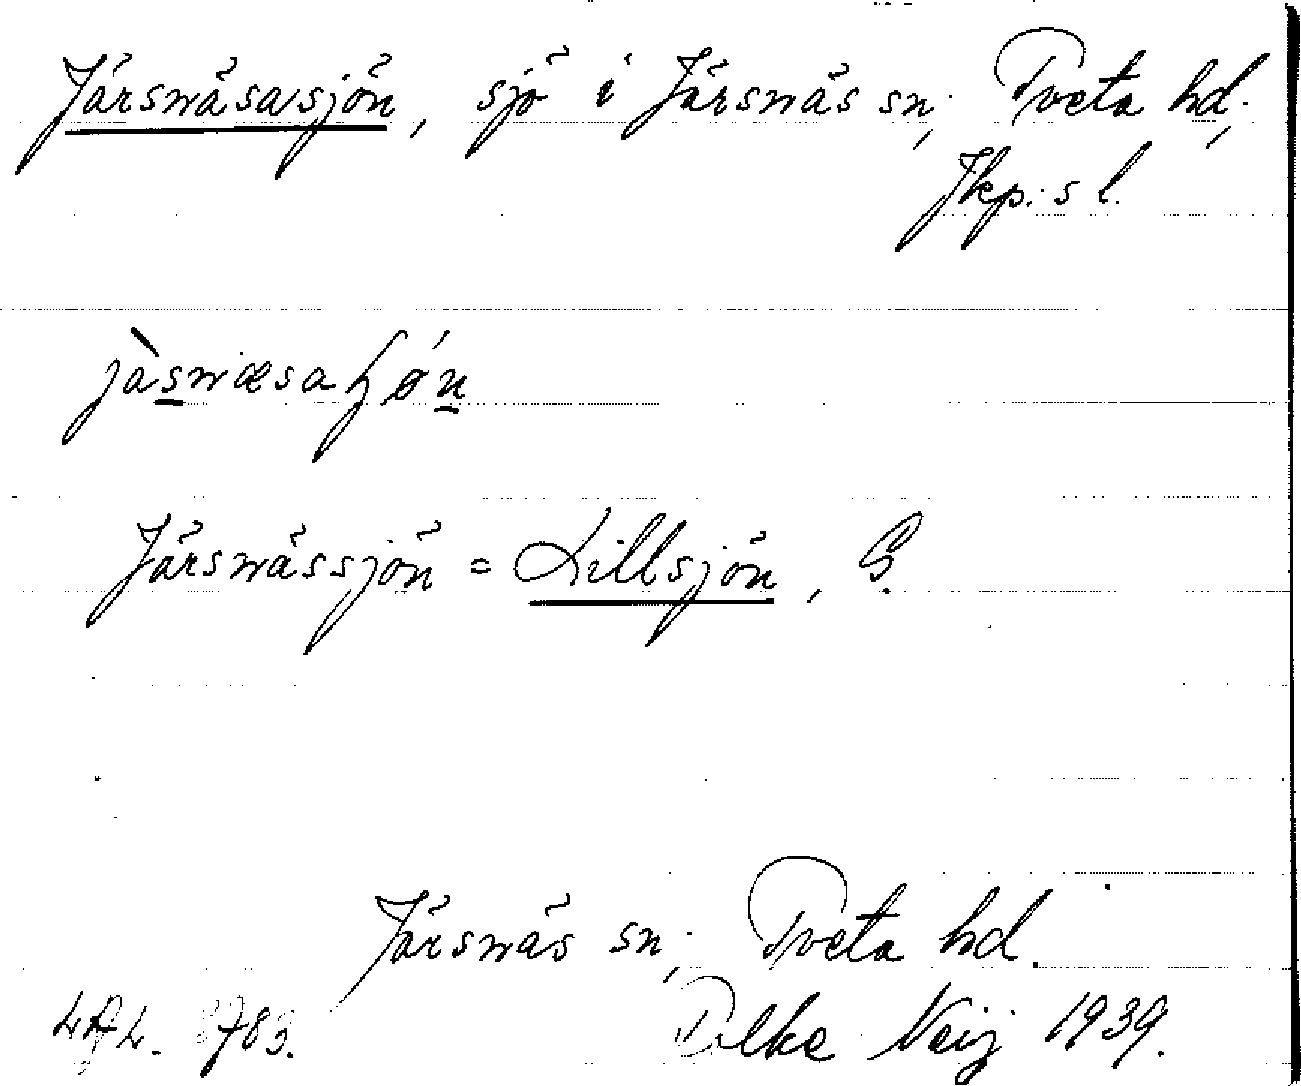 Järsnäsasjön, sjö i Järsnäs sn, Tveta hd,
Jkp:s l.
jàsnæsaɧǿn
Järsnässjön = Lillsjön, G.
Järsnäs sn, Tveta hd.
783. Neij 1939.